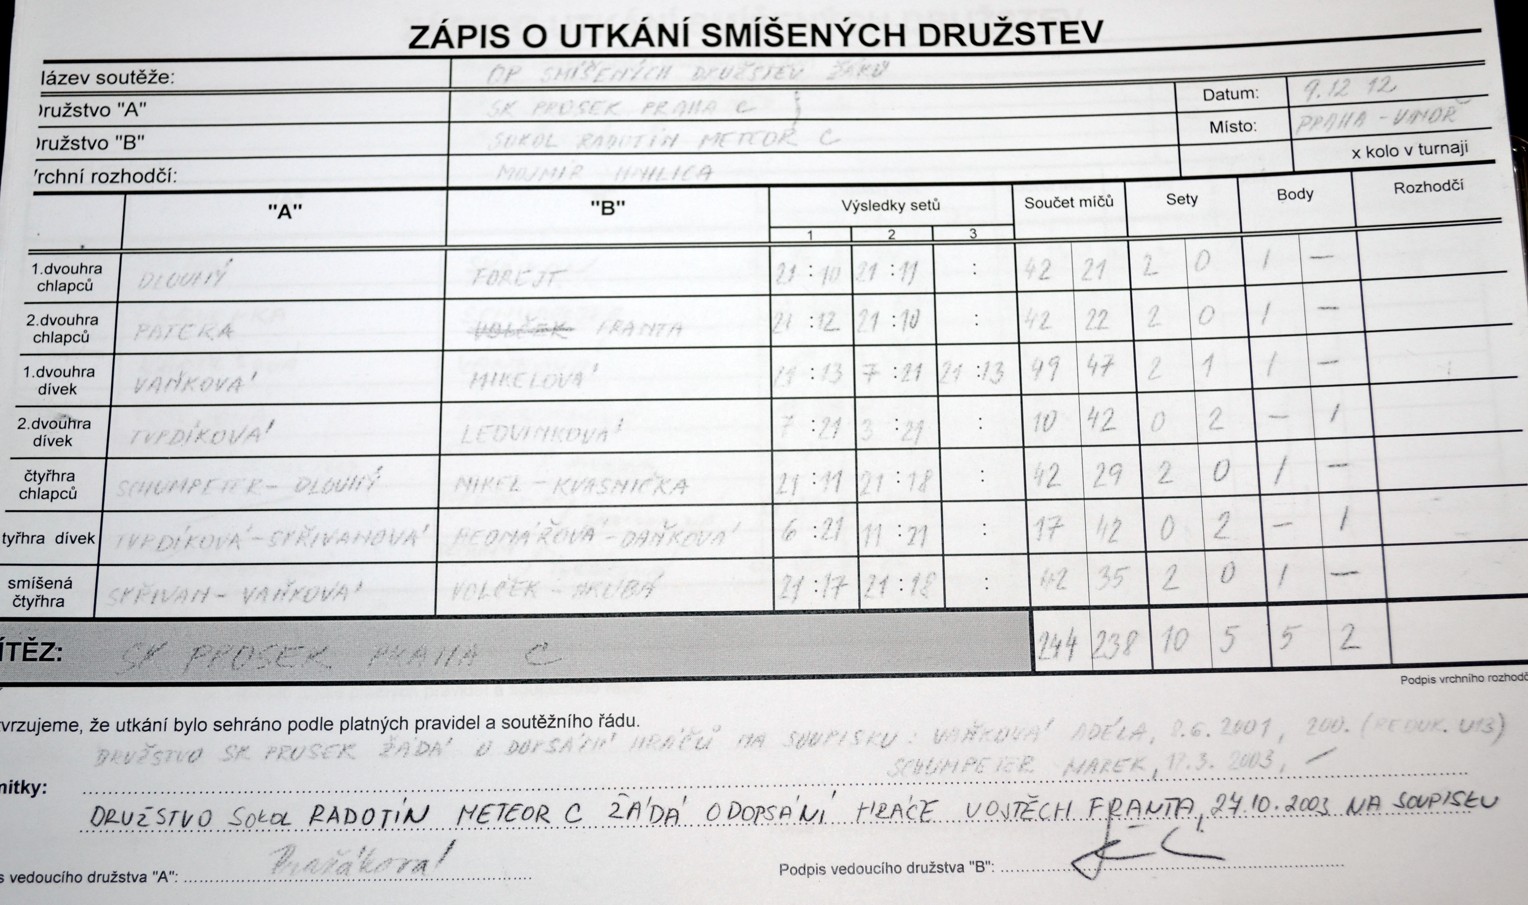 ZÁPIS O UTKÁNÍ SMÍŠENÝCH DRUŽSTEV
lázev soutěže: OP SMÍŠENÝCH DRUŽSTEV ŽÁKŮ
Družstvo "A" SK PROSEK PRAHA C Datum: 9.12 12
Družstvo "B" SOKOL RADOTÍN METEOR C Místo: PRAHA - VINOŘ
Vrchní rozhodčí: MOJMÍR x kolo v turnaji
"A" "B" Výsledky setů Součet míčů Sety Body Rozhodčí
1 2 3
1.dvouhra chlapců DLOUHÝ FOREJT 21 : 10 21 : 11 : 42 21 2 0 1 —
2.dvouhra chlapců PATEKA VOLČEK FRANTA 21 : 12 21 : 10 : 42 22 2 0 1 —
1.dvouhra dívek VAŇKOVÁ MIKELOVÁ 21 : 13 7 : 21 21 : 13 49 47 2 1 1 —
2.dvouhra dívek TVRDÍKOVÁ LEDVINKOVÁ 7 : 21 3 : 21 : 10 42 0 2 — 1
čtyřhra chlapců SCHUMPETER - DLOUHÝ MIKEL - KVASNIČKA 21 : 11 21 : 18 : 42 29 2 0 1 —
tyřhra dívek TVRDÍKOVÁ - SKŘIVANOVÁ - DAŇKOVÁ 6 : 21 11 : 21 : 17 42 0 2 — 1
smíšená čtyřhra SKŘIVAN - VAŇKOVÁ VOLČEK - HRUBÁ 21 : 17 21 : 18 : 42 35 2 0 1 —
ÍTĚZ: SK PROSEK PRAHA C 244 238 10 5 5 2
Podpis vrchního rozhodč
vrzujeme, že utkání bylo sehráno podle platných pravidel a soutěžního řádu.
DRUŽSTVO SK PROSEK ŽÁDÁ O DOPSÁNÍ HRÁČŮ NA SOUPISKU: VAŇKOVÁ ADÉLA, 8.6.2001, 200. (REDUK. U13)
SCHUMPETER MAREK, 12.3. 2003, —
nitky:
DRUŽSTVO SOKOL RADOTÍN METEOR C ŽÁDÁ O DOPSÁNÍ HRÁČE VOJTĚCH FRANTA, 24.10.2003 NA SOUPISKU
s vedoucího družstva "A": Podpis vedoucího družstva "B":